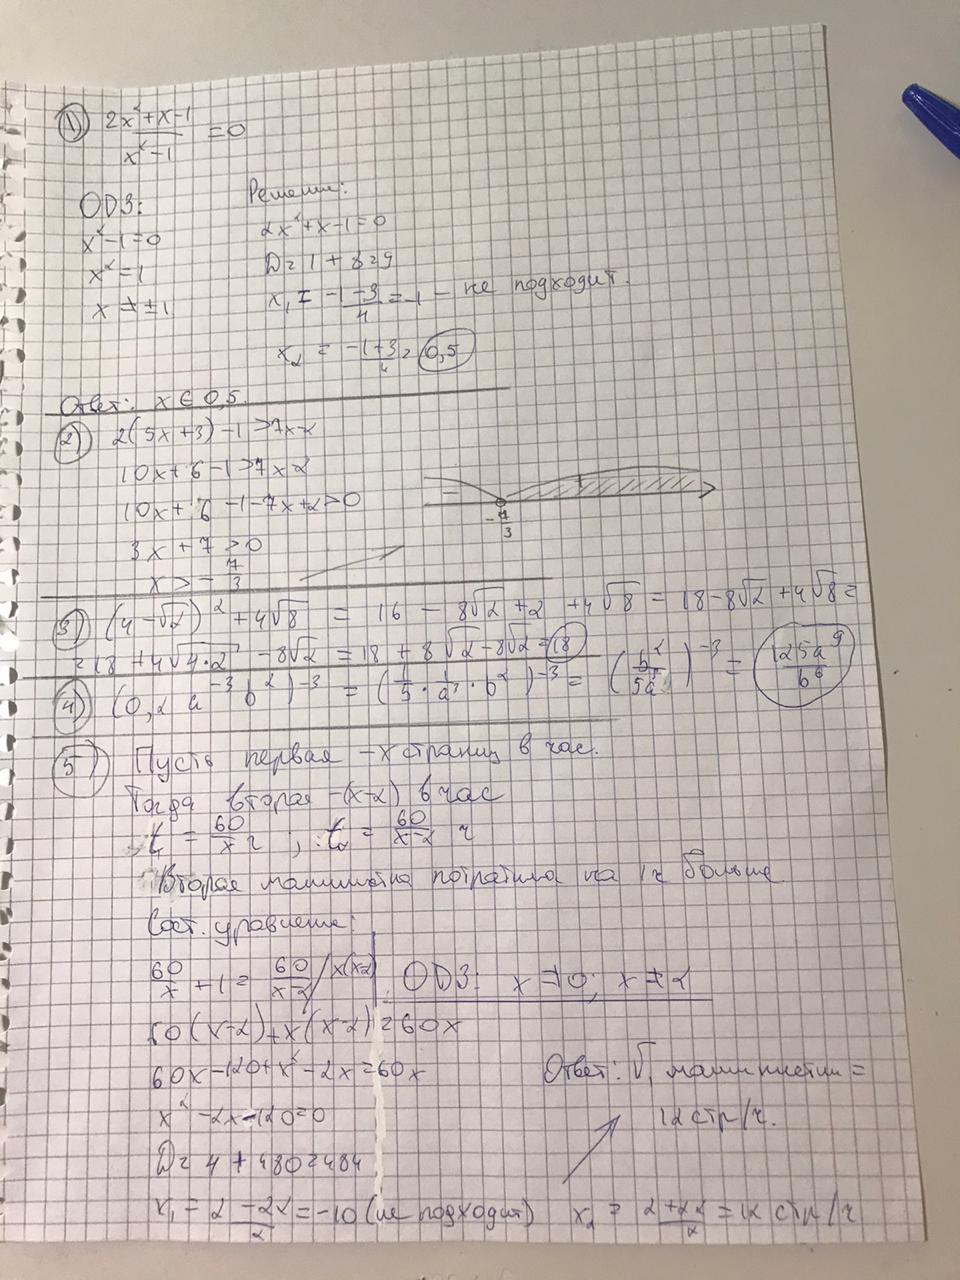 1) (2x²+x-1)/(x²-1) = 0
ОДЗ: Решение:
x²-1=0 2x²+x-1=0
x²=1 D=1+8=9
x≠±1 x₁ = (-1-3)/4 = -1 - не подходит.
x₂ = (-1+3)/4 = 0,5
Ответ: x ∈ 0,5.
2) 2(5x+3)-1>7x-2
10x+6-1>7x-2
10x+6-1-7x+2>0
3x+7>0
x>-7/3
- +
-7/3
3) (4-√2)²+4√8 = 16-8√2+2+4√8 = 18-8√2+4√8=
=18+4√(4·2)-8√2=18+8√2-8√2=18
4) (0,2 a⁻³ b²)⁻³ = (1/5·1/a³·b²)⁻³ = (b²/5a³)⁻³ = 125a⁹/b⁶
5) Пусть первая -x страниц в час.
Тогда вторая -(x-2) в час
t₁ = 60/x ч ; t₂ = 60/(x-2) ч
Вторая машинистка потратила на 1ч больше.
Сост. уравнение:
60/x + 1 = 60/(x-2) /x(x-2) ОДЗ: x≠0; x≠2
60(x-2)+x(x-2)=60x
60x-120+x²-2x=60x
x²-2x-120=0
D=4+480=484
x₁ = (2-22)/2 = -10 (не подходит) x₂ = (2+22)/2 = 12 стр/ч
Ответ: V₁ машинистки =
12 стр/ч.